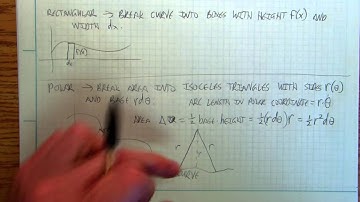 RECTANGULAR → BREAK CURVE INTO BOXES WITH HEIGHT f(x) AND
WIDTH dx.
f(x)
dx
POLAR → BREAK AREA INTO ISOCELES TRIANGLES WITH SIDES r(θ)
AND BASE rdθ ARC LENGTH IN POLAR COORDINATE = r·θ
AREA Δ = 1/2 base·height = 1/2(rdθ)r = 1/2 r²dθ
r r r
CURVE